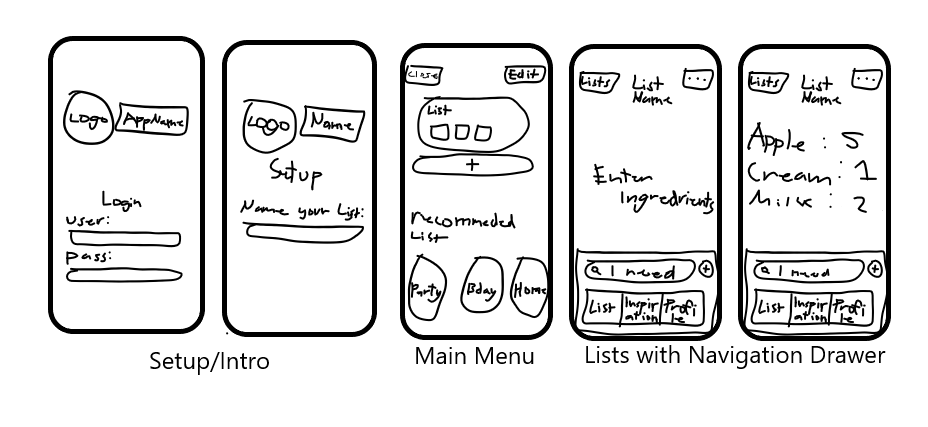 Logo
AppName
Login
user:
pass:
Logo
Name
Setup
Name your List:
Close
Edit
List
+
recommeded
List
Party
Bday
Home
Lists
List
Name
...
Enter
Ingredrients
I need
+
List
Inspir
ation
Profi
le
Lists
List
Name
...
Apple : 5
Cream: 1
Milk : 2
I need
+
List
Inspir
ation
Profi
le
Setup/Intro
Main Menu
Lists with Navigation Drawer